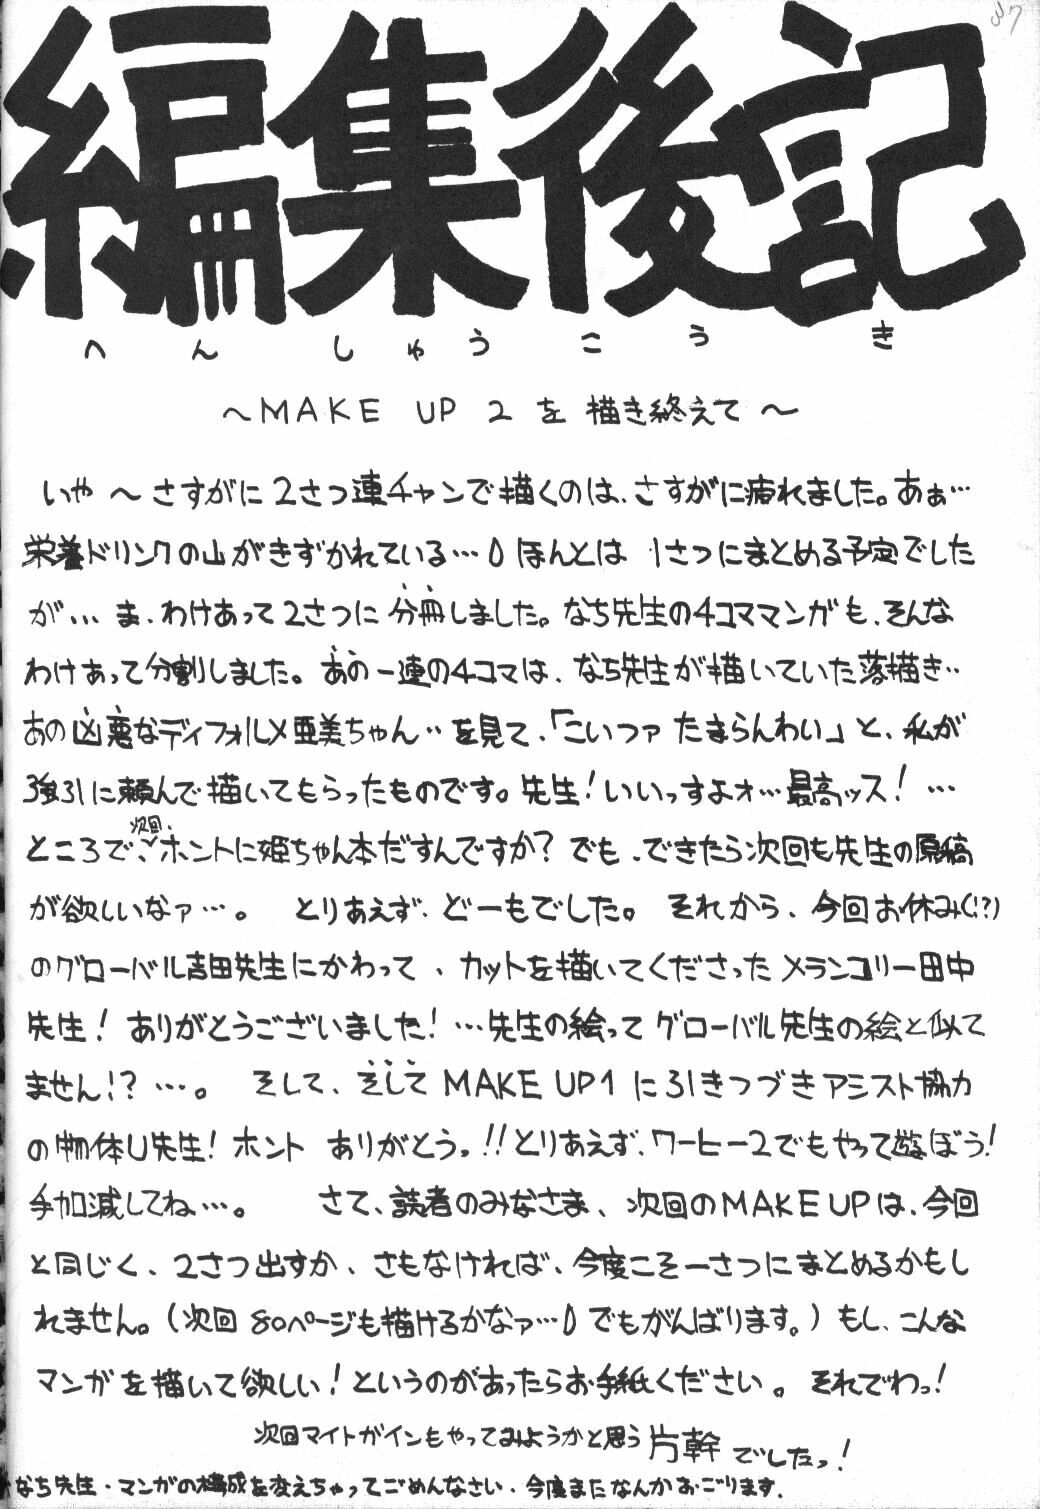 37
編集後記
へんしゅうこうき
～MAKE UP 2 を 描き終えて～
いや～さすがに2さつ連チャンで描くのは、さすがに疲れました。あぁ…
栄養ドリンクの山がきずかれている…。ほんとは 1さつにまとめる予定でした
が… ま、わけあって2さつに分冊しました。なち先生の4コママンガも、そんな
わけあって分割しました。あの一連の4コマは、なち先生が描いていた落描き…
あの凶悪なディフォルメ亜美ちゃん…を見て、「こいつァ たまらんわい」と、私が
強引に頼んで描いてもらったものです。先生！いいっすよォ…最高ッス！…
ところで、次回、ホントに姫ちゃん本だすんですか？でも、できたら次回も先生の原稿
が欲しいなァ…。 とりあえず、どーもでした。 それから、今回お休み(!?)
のグローバル吉田先生にかわって、カットを描いてくださったメランコリー田中
先生！ありがとうございました！…先生の絵って グローバル先生の絵と似て
ません!?…。 そして、そして MAKE UP1 に引きつづきアシスト協力
の物体U先生！ホント ありがとう。!!とりあえず、ワーヒー2でもやって遊ぼう！
手加減してね…。 さて、読者のみなさま、次回のMAKE UPは、今回
と同じく、2さつ出すか、さもなければ、今度こそ一さつにまとめるかもし
れません。（次回80ページも描けるかなァ…でもがんばります。）もし、こんな
マンガを描いて欲しい！というのがあったらお手紙ください。それでわっ！
次回マイトガインもやってみようかと思う片幹でしたっ！
なち先生・マンガの構成を変えちゃってごめんなさい、今度またなんかおごります。